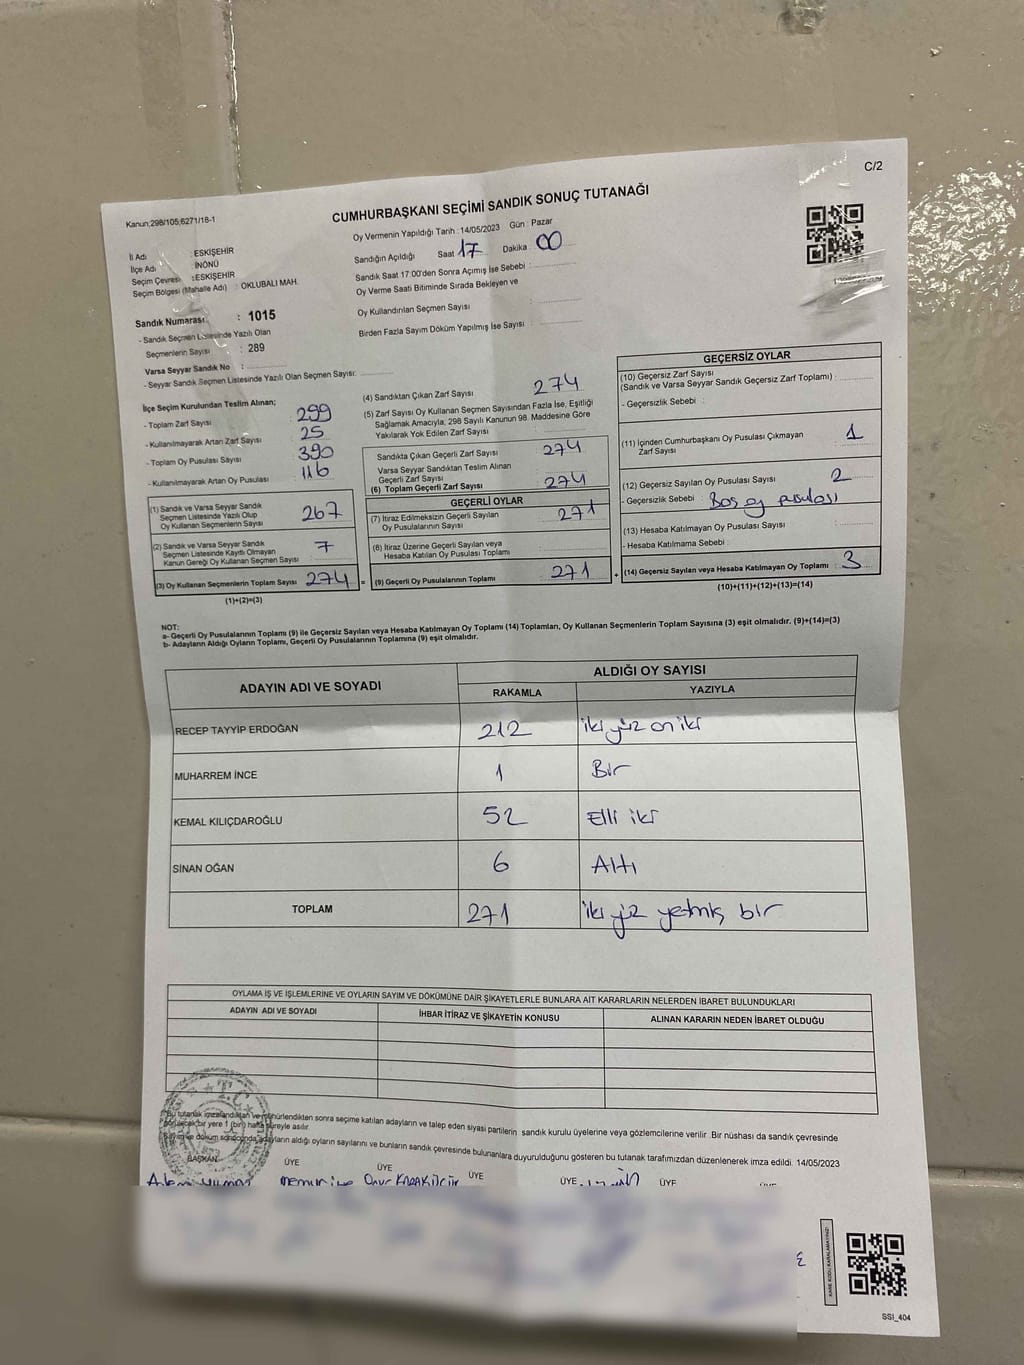 C/2
Kanun:298/105;6271/18-1
CUMHURBAŞKANI SEÇİMİ SANDIK SONUÇ TUTANAĞI
Oy Vermenin Yapıldığı Tarih : 14/05/2023 Gün : Pazar
İl Adı : ESKİŞEHİR
İlçe Adı : İNÖNÜ
Seçim Çevresi : ESKİŞEHİR
Seçim Bölgesi (Mahalle Adı) : OKLUBALI MAH.
Sandığın Açıldığı Saat 17 Dakika : 00
Sandık Saat 17:00'den Sonra Açımış İse Sebebi :
Oy Verme Saati Bitiminde Sırada Bekleyen ve
Oy Kullandırılan Seçmen Sayısı :
Birden Fazla Sayım Döküm Yapılmış İse Sayısı :
Sandık Numarası : 1015
- Sandık Seçmen Listesinde Yazılı Olan
Seçmenlerin Sayısı : 289
Varsa Seyyar Sandık No :
- Seyyar Sandık Seçmen Listesinde Yazılı Olan Seçmen Sayısı:
İlçe Seçim Kurulundan Teslim Alınan;
- Toplam Zarf Sayısı : 299
- Kullanılmayarak Artan Zarf Sayısı : 25
- Toplam Oy Pusulası Sayısı : 390
- Kullanılmayarak Artan Oy Pusulası : 116
(1) Sandık ve Varsa Seyyar Sandık
Seçmen Listesinde Yazılı Olup
Oy Kullanan Seçmenlerin Sayısı : 267
(2) Sandık ve Varsa Seyyar Sandık
Seçmen Listesinde Kayıtlı Olmayan
Kanun Gereği Oy Kullanan Seçmen Sayısı : 7
(3) Oy Kullanan Seçmenlerin Toplam Sayısı : 274 =
(1)+(2)=(3)
(4) Sandıktan Çıkan Zarf Sayısı : 274
(5) Zarf Sayısı Oy Kullanan Seçmen Sayısından Fazla İse, Eşitliği
Sağlamak Amacıyla, 298 Sayılı Kanunun 98. Maddesine Göre
Yakılarak Yok Edilen Zarf Sayısı :
Sandıkta Çıkan Geçerli Zarf Sayısı : 274
Varsa Seyyar Sandıktan Teslim Alınan
Geçerli Zarf Sayısı :
(6) Toplam Geçerli Zarf Sayısı : 274
GEÇERLİ OYLAR
(7) İtiraz Edilmeksizin Geçerli Sayılan
Oy Pusulalarının Sayısı : 271
(8) İtiraz Üzerine Geçerli Sayılan veya
Hesaba Katılan Oy Pusulası Toplamı :
(9) Geçerli Oy Pusulalarının Toplamı : 271 +
GEÇERSİZ OYLAR
(10) Geçersiz Zarf Sayısı
(Sandık ve Varsa Seyyar Sandık Geçersiz Zarf Toplamı) :
- Geçersizlik Sebebi :
(11) İçinden Cumhurbaşkanı Oy Pusulası Çıkmayan
Zarf Sayısı : 1
(12) Geçersiz Sayılan Oy Pusulası Sayısı : 2
- Geçersizlik Sebebi : Boş oy pusulası
(13) Hesaba Katılmayan Oy Pusulası Sayısı :
- Hesaba Katılmama Sebebi :
(14) Geçersiz Sayılan veya Hesaba Katılmayan Oy Toplamı : 3
(10)+(11)+(12)+(13)=(14)
NOT:
a- Geçerli Oy Pusulalarının Toplamı (9) ile Geçersiz Sayılan veya Hesaba Katılmayan Oy Toplamı (14) Toplamları, Oy Kullanan Seçmenlerin Toplam Sayısına (3) eşit olmalıdır. (9)+(14)=(3)
b- Adayların Aldığı Oyların Toplamı, Geçerli Oy Pusulalarının Toplamına (9) eşit olmalıdır.
ADAYIN ADI VE SOYADI ALDIĞI OY SAYISI
RAKAMLA YAZIYLA
RECEP TAYYİP ERDOĞAN 212 iki yüz on iki
MUHARREM İNCE 1 Bir
KEMAL KILIÇDAROĞLU 52 Elli iki
SİNAN OĞAN 6 Altı
TOPLAM 271 iki yüz yetmiş bir
OYLAMA İŞ VE İŞLEMLERİNE VE OYLARIN SAYIM VE DÖKÜMÜNE DAİR ŞİKAYETLERLE BUNLARA AİT KARARLARIN NELERDEN İBARET BULUNDUKLARI
ADAYIN ADI VE SOYADI İHBAR İTİRAZ VE ŞİKAYETİN KONUSU ALINAN KARARIN NEDEN İBARET OLDUĞU
T.C.
Bu tutanak imzalandıktan ve mühürlendikten sonra seçime katılan adayların ve talep eden siyasi partilerin sandık kurulu üyelerine veya gözlemcilerine verilir. Bir nüshası da sandık çevresinde
görülecek bir yere 1 (bir) hafta süreyle asılır.
Sayım ve döküm sonucunda adayların aldığı oyların sayılarını ve bunların sandık çevresinde bulunanlara duyurulduğunu gösteren bu tutanak tarafımızdan düzenlenerek imza edildi. 14/05/2023
BAŞKAN ÜYE ÜYE ÜYE ÜYE ÜYE
KARE KODU KARALAMAYINIZ!
SSI_404